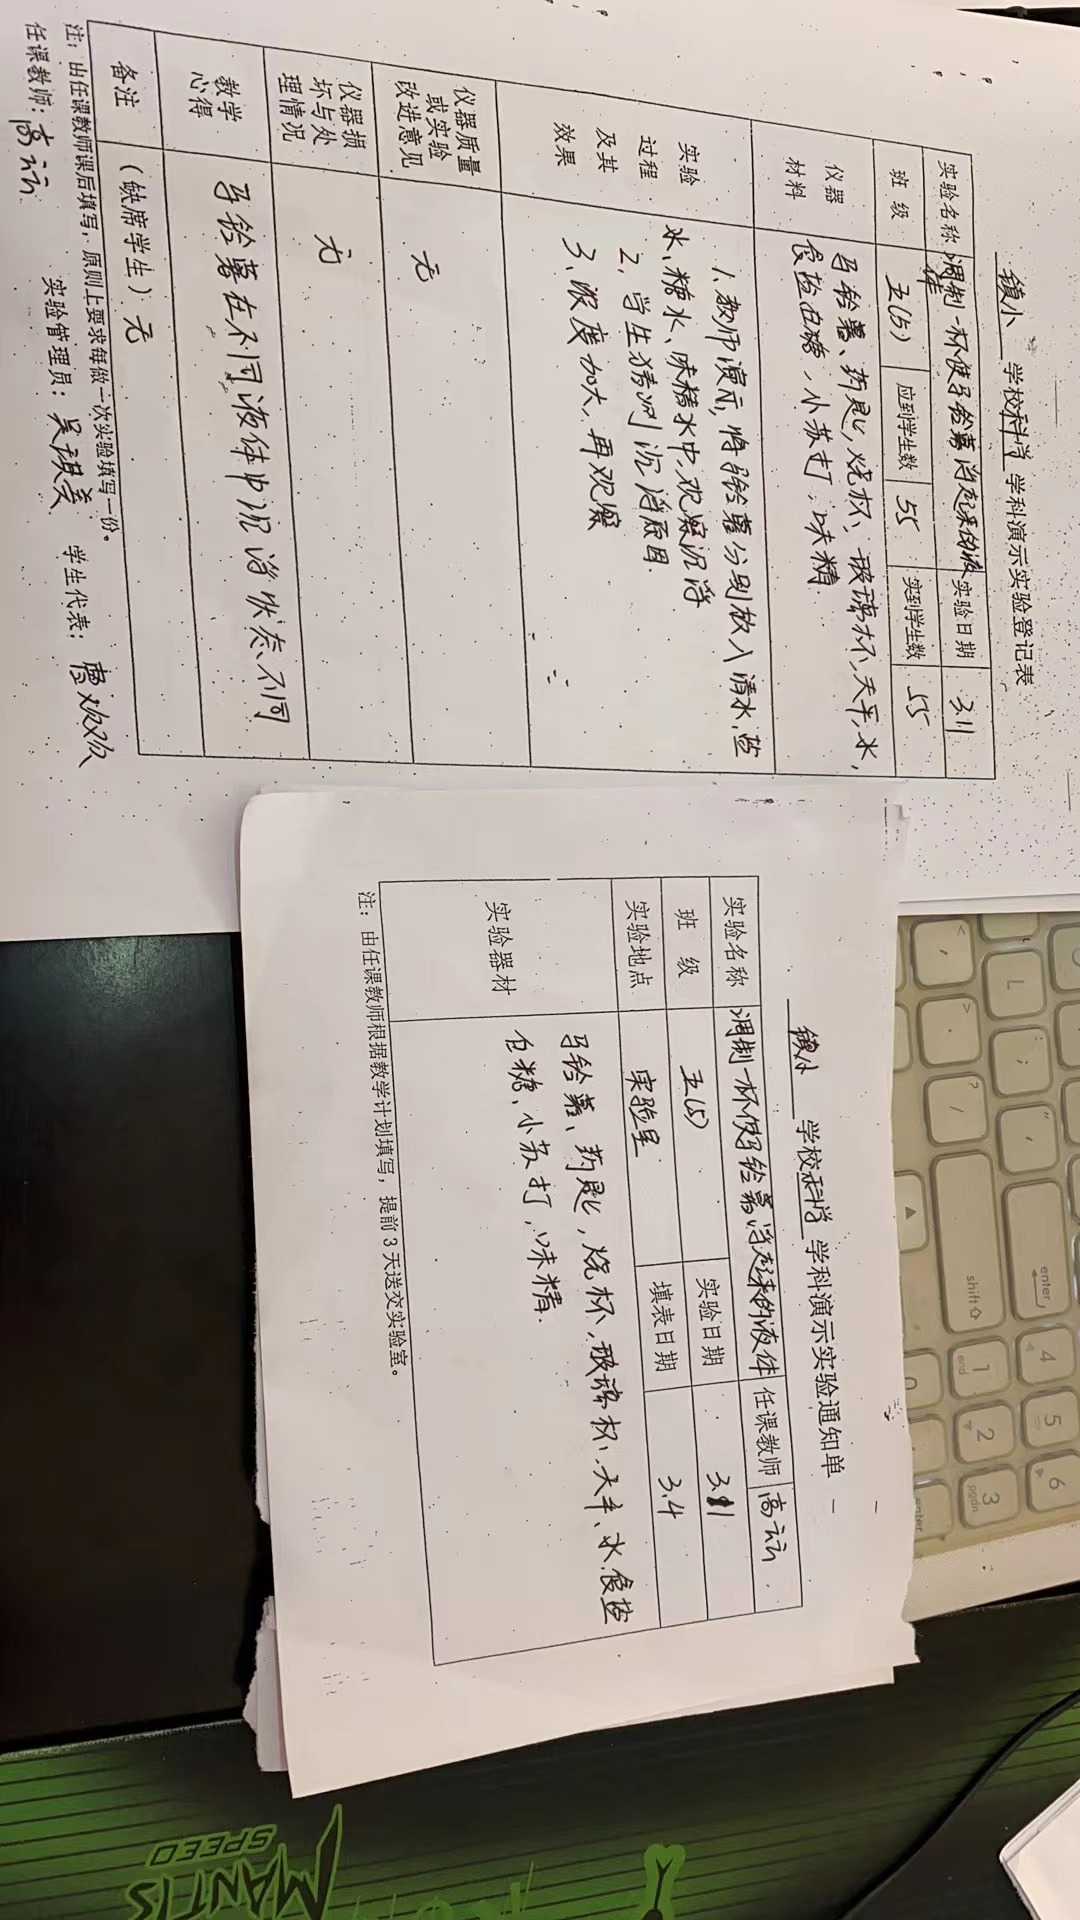 镇小 学校科学 学科演示实验登记表
实验名称 调制一杯使马铃薯浮起来的液体 实验日期 3.11
班 级 五(5) 应到学生数 55 实到学生数 55
仪器材料 马铃薯、药匙,烧杯、玻璃杯、天平,水,
食盐白糖,小苏打,味精
实验过程及其效果 1、教师演示,将马铃薯分别放入清水,盐
水、糖水、味精水中,观察沉浮
2、学生猜测沉浮原因.
3、浓度加大,再观察
仪器质量或实验改进意见 无
仪器损坏与处理情况 无
教学心得 马铃薯在不同液体中沉浮状态不同
备注 (缺席学生)无
注:由任课教师课后填写,原则上要求每做一次实验填写一份。
任课教师:高 实验管理员:吴琪美 学生代表:曹欢欢
镇小 学校科学 学科演示实验通知单
实验名称 调制一杯使马铃薯浮起来的液体 任课教师 高
班 级 五(5) 实验日期 3.11
实验地点 实验室 填表日期 3.4
实验器材 马铃薯、药匙,烧杯,玻璃杯、天平、水.食盐
白糖、小苏打,味精.
注:由任课教师根据教学计划填写,提前3天送交实验室。
L
enter
shift
end
pgdn
enter
1
2
3
4
5
6
0
MANTIS
SPEED